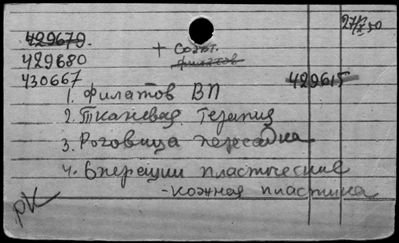 27/X 50
429679.
429680 + Соэт. филатов
430667 429615
1. Филатов ВП
2. Тканевая терапия
3. Роговица пересадка
4. Операции пластические
- кожная пластика
РК